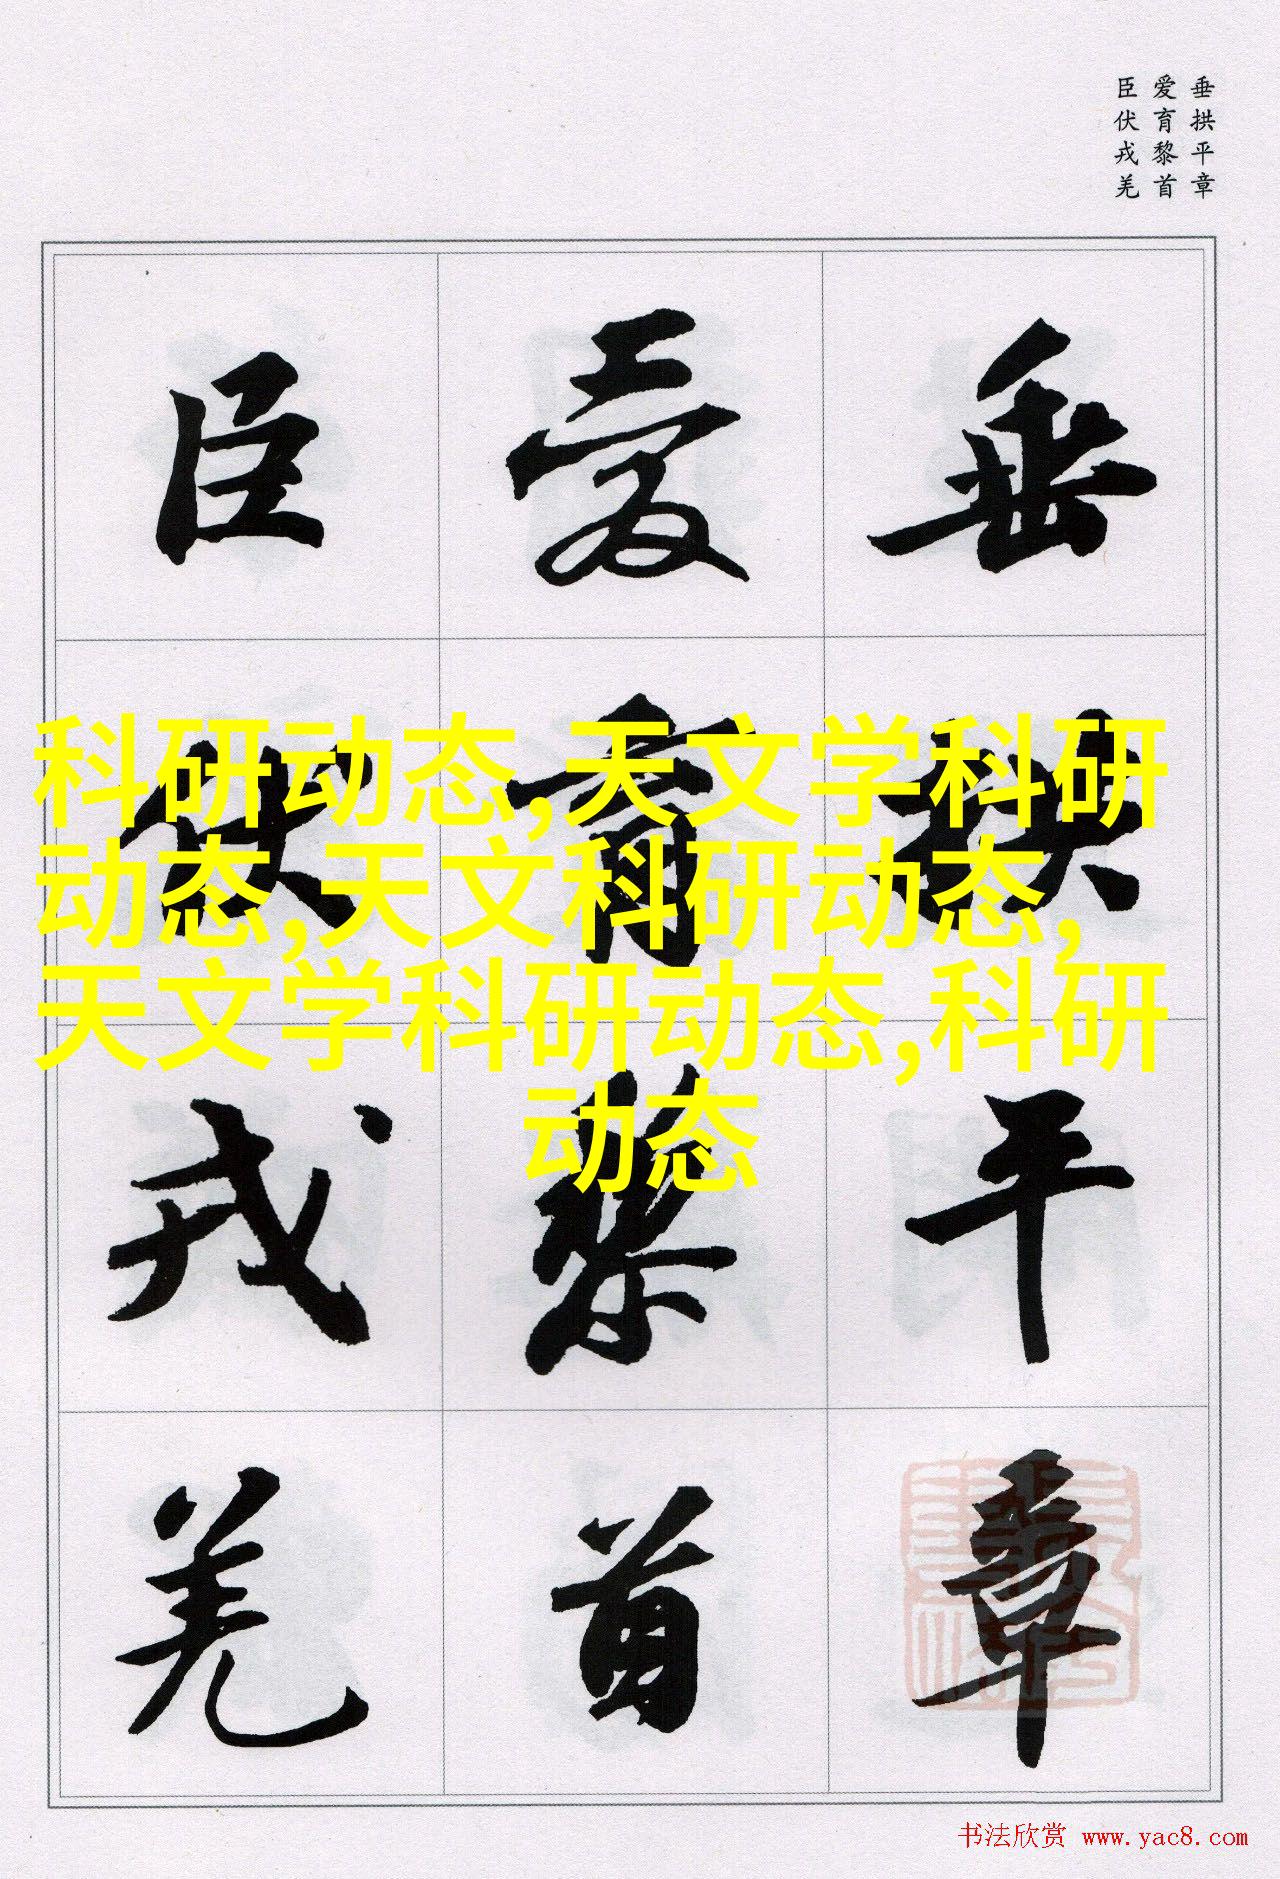 垂拱平章
爱育黎首
臣伏戎羌
垂拱平章
爱育黎首
臣伏戎羌
科研动态,天文学科研
动态,天文科研动态,
天文学科研动态,科研
动态
书法欣赏 www.yac8.com